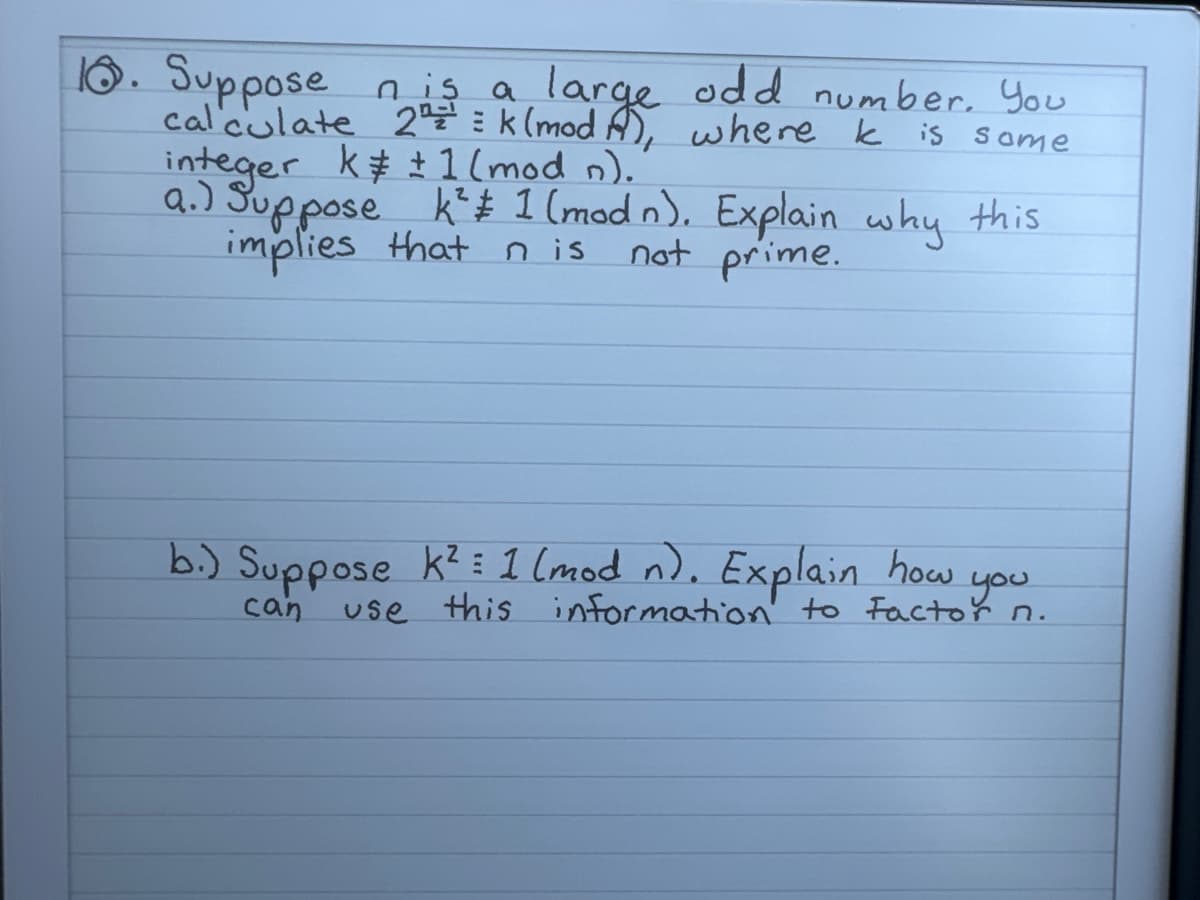 10. Suppose n is a large odd number. You
calculate 2^((n-1)/2) ≡ k (mod n), where k is some
integer k ≢ ± 1 (mod n).
a.) Suppose k² ≢ 1 (mod n). Explain why this
implies that n is not prime.
b.) Suppose k² ≡ 1 (mod n). Explain how you
can use this information to factor n.